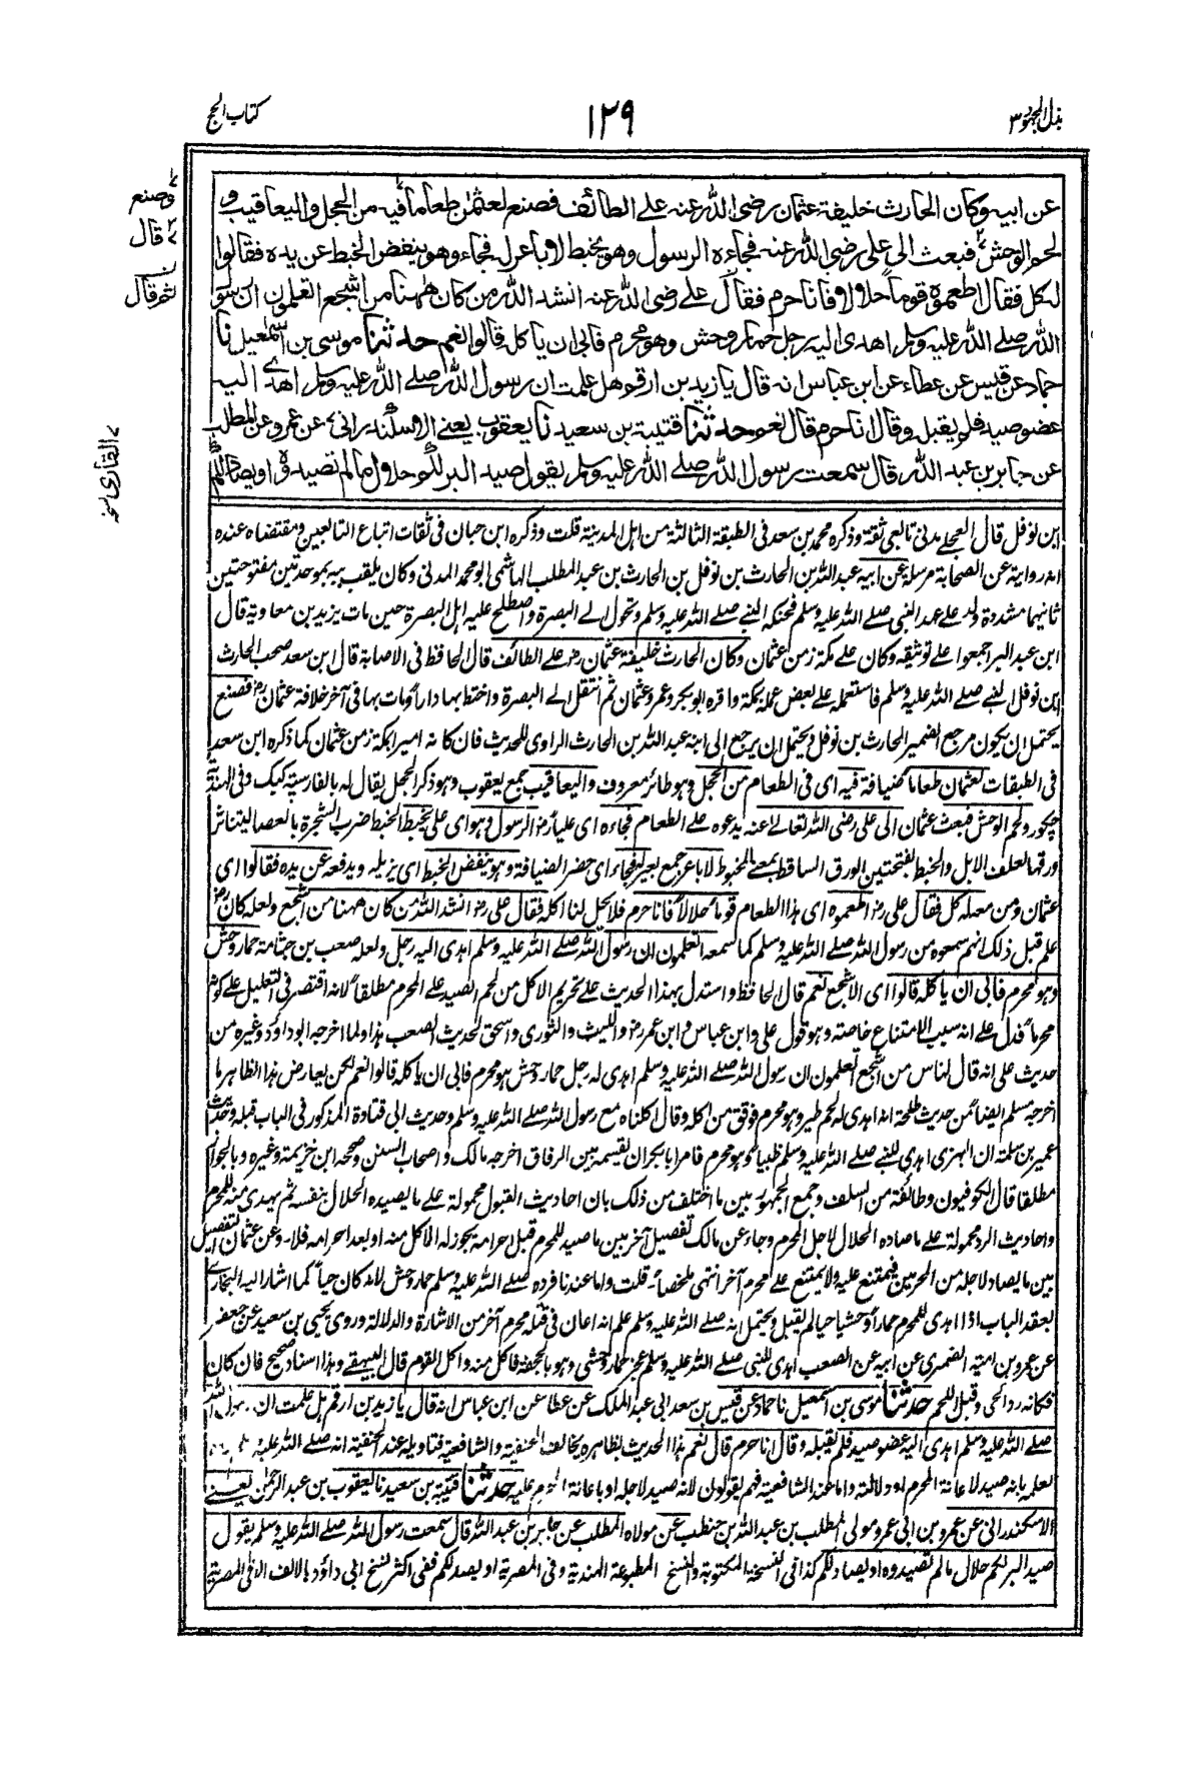 بذل المجهود ٣
١٢٩
كتاب الحج
عن ابيه وكان الحارث خليفة عثمان رضى الله عنه على الطائف فصنع لعثمان طعاما فيه من الحجل واليعاقيب و
لحم الوحش فبعث الى على رضى الله عنه فجاءه الرسول وهو يخبط لاباعر له فجاء وهو ينفض الخبط عن يده فقالوا
له كل فقال اطعموه قوما حلالا فانا حرم فقال على رضى الله عنه انشد الله من كان ههنا من اشجع اتعلمون ان رسول
الله صلى الله عليه وسلم اهدى اليه رجل حمار وحش وهو محرم فابى ان ياكله قالوا نعم حدثنا موسى بن اسمعيل نا
حماد عن قيس عن عطاء عن ابن عباس انه قال يا زيد بن ارقم هل علمت ان رسول الله صلى الله عليه وسلم اهدى اليه
عضو صيد فلم يقبله وقال انا حرم قال نعم حدثنا قتيبة بن سعيد نا يعقوب يعنى الاسكندرانى عن عمرو عن المطلب
عن جابر بن عبد الله قال سمعت رسول الله صلى الله عليه وسلم يقول صيد البر لكم حلال ما لم تصيدوه او يصاد لكم
وصنع
قال
ثم قال
القارى نسخه
ابن نوفل قال العجلى مدنى تابعى ثقة وذكره محمد بن سعد فى الطبقة الثالثة من اهل المدينة قلت وذكره ابن حبان فى ثقات اتباع التابعين ومقتضاه عنده
ان روايته عن الصحابة مرسلة عن ابيه عبدالله بن الحارث بن نوفل بن الحارث بن عبد المطلب الهاشمى ابو محمد المدنى وكان يلقب ببه بموحدتين مفتوحتين
ثانيهما مشددة ولد على عهد النبى صلى الله عليه وسلم فحنكه النبى صلى الله عليه وسلم وتحول الى البصرة واصطلح عليه اهل البصرة حين مات يزيد بن معاوية قال
ابن عبد البر اجمعوا على توثيقه وكان على مكة زمن عثمان وكان الحارث خليفة عثمان رض على الطائف قال الحافظ فى الاصابة قال ابن سعد صحب الحارث
ابن نوفل النبى صلى الله عليه وسلم فاستعمله على بعض عمله بمكة واقره ابو بكر وعمر وعثمان ثم انتقل الى البصرة واختط بها دارا ومات بها فى آخر خلافة عثمان رض فصنع
يحتمل ان يكون مرجع الضمير الحارث بن نوفل ويحتمل ان يرجع الى ابنه عبدالله بن الحارث الراوى للحديث فان كانه اميرا بمكة زمن عثمان كما ذكره ابن سعد
فى الطبقات لعثمان طعاما كضيافة فيه اى فى الطعام من الحجل وهو طائر معروف واليعاقيب جمع يعقوب وهو ذكر الحجل يقال له بالفارسية كبك وفى الهندية
چكور ولحم الوحش فبعث عثمان الى على رضى الله تعالى عنه يدعوه على الطعام فجاءه اى عليا رض الرسول وهو اى على يخبط الخبط ضرب الشجرة بالعصا ليتناثر
ورقها لعلف الابل والخبط بفتحتين الورق الساقط بمعنى المخبوط لاباعر جمع بعير فجاء اى حضر الضيافة وهو ينفض الخبط اى يزيله ويدفعه عن يده فقالوا اى
عثمان ومن معه له كل فقال على رض اطعموه اى هذا الطعام قوما حلالا فانا حرم فلا يحل لنا اكله فقال على رض انشد الله من كان ههنا من اشجع ولعله كان رض
علم قبل ذلك انهم سمعوه من رسول الله صلى الله عليه وسلم كما سمعه اتعلمون ان رسول الله صلى الله عليه وسلم اهدى اليه رجل ولعله صعب بن جثامة حمار وحش
وهو محرم فابى ان ياكله قالوا اى الاشجع نعم قال الحافظ واستدل بهذا الحديث على تحريم الاكل من لحم الصيد على المحرم مطلقا لانه اقتصر فى التعليل على كونه
محرما فدل على انه سبب الامتناع خاصته وهو قول على وابن عباس وابن عمر رض والليث والثورى واسحق لحديث الصعب هذا ولما اخرجه ابو داؤد وغيره من
حديث على انه قال لناس من اشجع اتعلمون ان رسول الله صلى الله عليه وسلم اهدى له رجل حمار وحش وهو محرم فابى ان ياكله قالوا نعم لكن يعارض هذا الظاهر ما
اخرجه مسلم ايضا من حديث طلحة انه اهدى له لحم طير وهو محرم فوفق من اكله وقال اكلناه مع رسول الله صلى الله عليه وسلم وحديث ابى قتادة المذكور فى الباب قبله وحديث
عمير بن سلمة ان البهزى اهدى للنبى صلى الله عليه وسلم ظبيا وهو محرم فامر ابا بكر ان يقسمه بين الرفاق اخرجه مالك واصحاب السنن وصححه ابن خزيمة وغيره وبالجواز
مطلقا قال الكوفيون وطائفة من السلف وجمع الجمهور بين ما اختلف من ذلك بان احاديث القبول محمولة على ما يصيده الحلال بنفسه ثم يهدى منه للمحرم
واحاديث الرد محمولة على ما صاده الحلال لاجل المحرم وجاء عن مالك تفصيل آخر بين ما صيد للمحرم قبل احرامه يجوز له الاكل منه او بعد احرامه فلا وعن عثمان التفصيل
بين ما يصاد لاجله من المحرمين فيمتنع عليه ولا يمتنع على محرم آخر انتهى ملخصا قلت واما عندنا فرده صلى الله عليه وسلم حمار وحش لانه كان حيا كما اشار اليه البخارى
بعقد الباب اذا اهدى للمحرم حمارا وحشيا حيا لم يقبل ويحتمل انه صلى الله عليه وسلم علم انه اعان فى قتله محرم آخر من الاشارة والدلالة وروى يحيى بن سعيد عن جعفر
عن عمرو بن امية الضمرى عن ابيه عن الصعب اهدى للنبى صلى الله عليه وسلم عجز حمار وحشى وهو بالجحفة فاكل منه واكل القوم قال البيهقى وهذا اسناد صحيح فان كان
فكانه رد الحى وقبل اللحم حدثنا موسى بن اسمعيل نا حماد عن قيس بن سعد ابى عبد الملك عن عطا عن ابن عباس انه قال يا زيد بن ارقم هل علمت ان رسول الله
صلى الله عليه وسلم اهدى اليه عضو صيد فلم يقبله وقال انا حرم قال نعم هذا الحديث بظاهره يخالف الحنفية والشافعية فتاويله عند الحنفية انه صلى الله عليه
لعلمه بانه صيد لاعانة المحرم او دلالته واما عند الشافعية فهم يقولون لانه صيد لاجله او باعانة المحرم عليه حدثنا قتيبة بن سعيد نا يعقوب بن عبد الرحمن يعنى
الاسكندرانى عن عمرو بن ابى عمرو مولى المطلب بن عبدالله بن حنطب عن مولاه المطلب عن جابر بن عبد الله قال سمعت رسول الله صلى الله عليه وسلم يقول
صيد البر لكم حلال ما لم تصيدوه او يصاد لكم كذا فى النسخة المكتوبة والنسخ المطبوعة الهندية وفى المصرية او يصد لكم ففى اكثر نسخ ابى داؤد بالالف الا فى المصرية